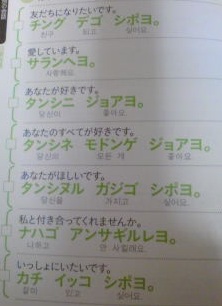 友だちになりたいです。
チング デゴ シポヨ。
친구 되고 싶어요.
愛しています。
サランヘヨ。
사랑해요.
あなたが好きです。
タンシニ ジョアヨ。
당신이 좋아요.
あなたのすべてが好きです。
タンシネ モドンゲ ジョアヨ。
당신의 모든 게 좋아요.
あなたがほしいです。
タンシヌル ガジゴ シポヨ。
당신을 가지고 싶어요.
私と付き合ってくれませんか。
ナハゴ アンサギルレヨ。
나하고 안 사길래요.
いっしょにいたいです。
カチ イッコ シポヨ。
같이 있고 싶어요.